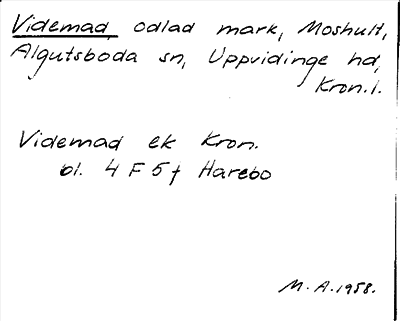 Videmad, odlad mark, Moshult,
Algutsboda sn, Uppvidinge hd,
Kron.l.
Videmad ek Kron.
bl. 4 F 5 f Harebo
M.A. 1958.